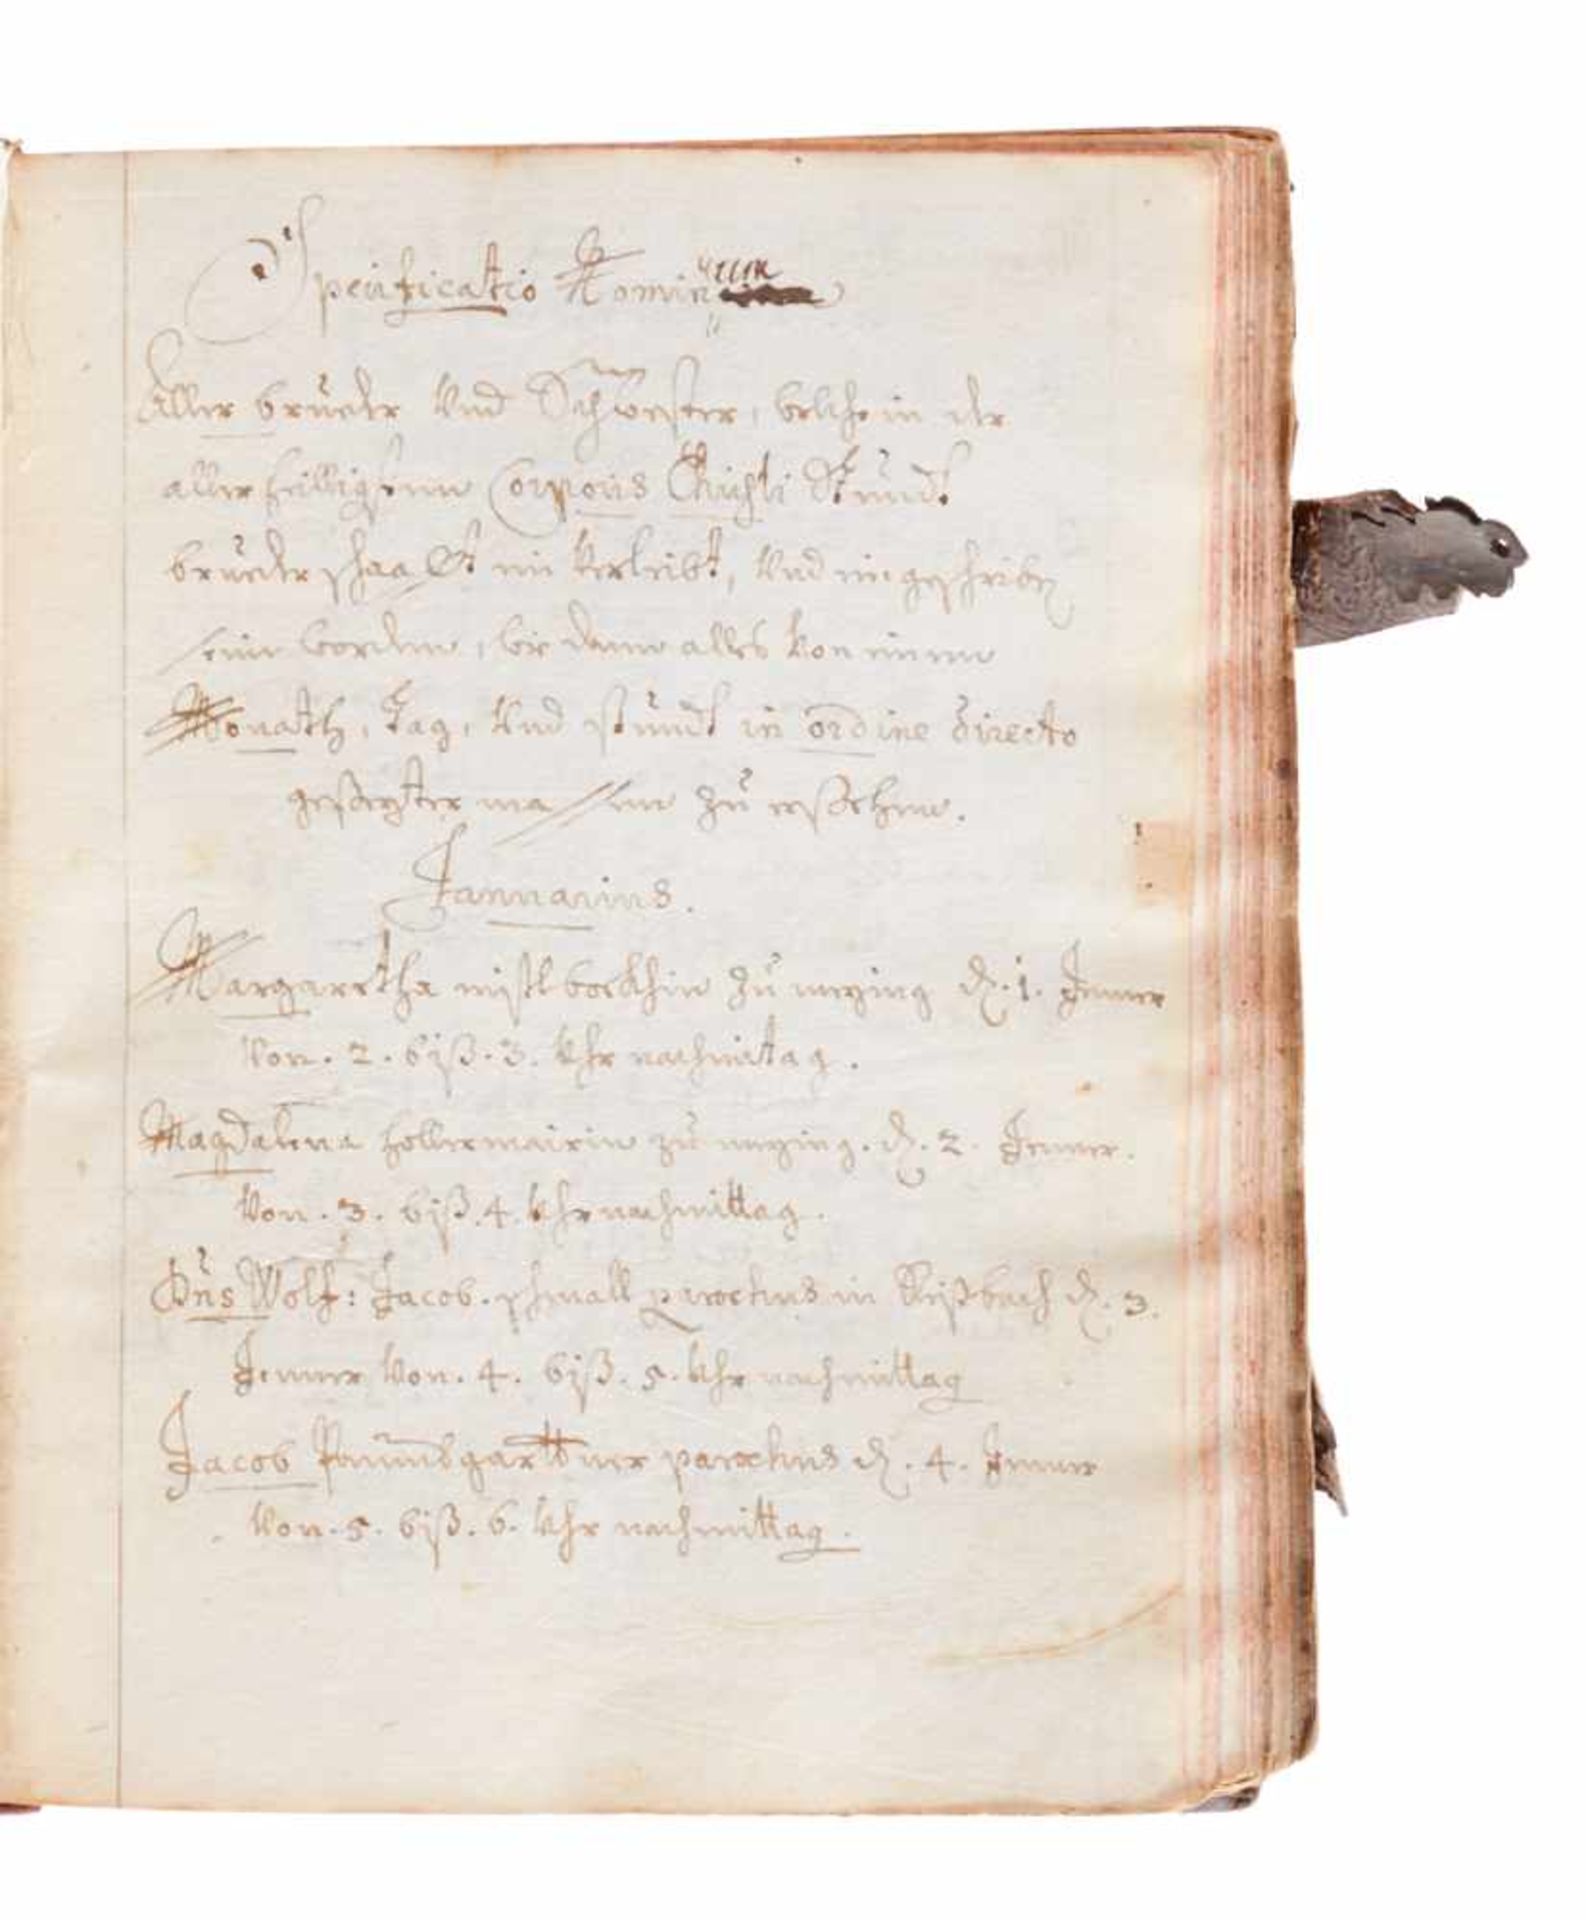 Specificatio Nominum
Aller brüeder Vnd Schwester, welche in der
allerheilligisten Corporis Christi Stundt
brüederschaafft ein Verleibt, Vnd eingeschriben
sein worden, wie dann alles Von einem
Monath, Tag, Vnd stundt in ordine directo
gesezter massen zu ersechen.
Januarius.
Margaretha mistlbockhin zu d. 1. Jenner
Von. 2. biß. 3. Vhr nachmitag.
Magdalena hollermairin zu d. 2. Jenner.
Von. 3. biß. 4. Vhr nachmittag.
Dns Wolf: Jacob. schmall parochus in d. 3.
Jenner Von. 4. biß. 5. Vhr nachmittag
Jacob Paumbgarttner parochus d. 4. Jenner
Von. 5. biß. 6. Vhr nachmittag.